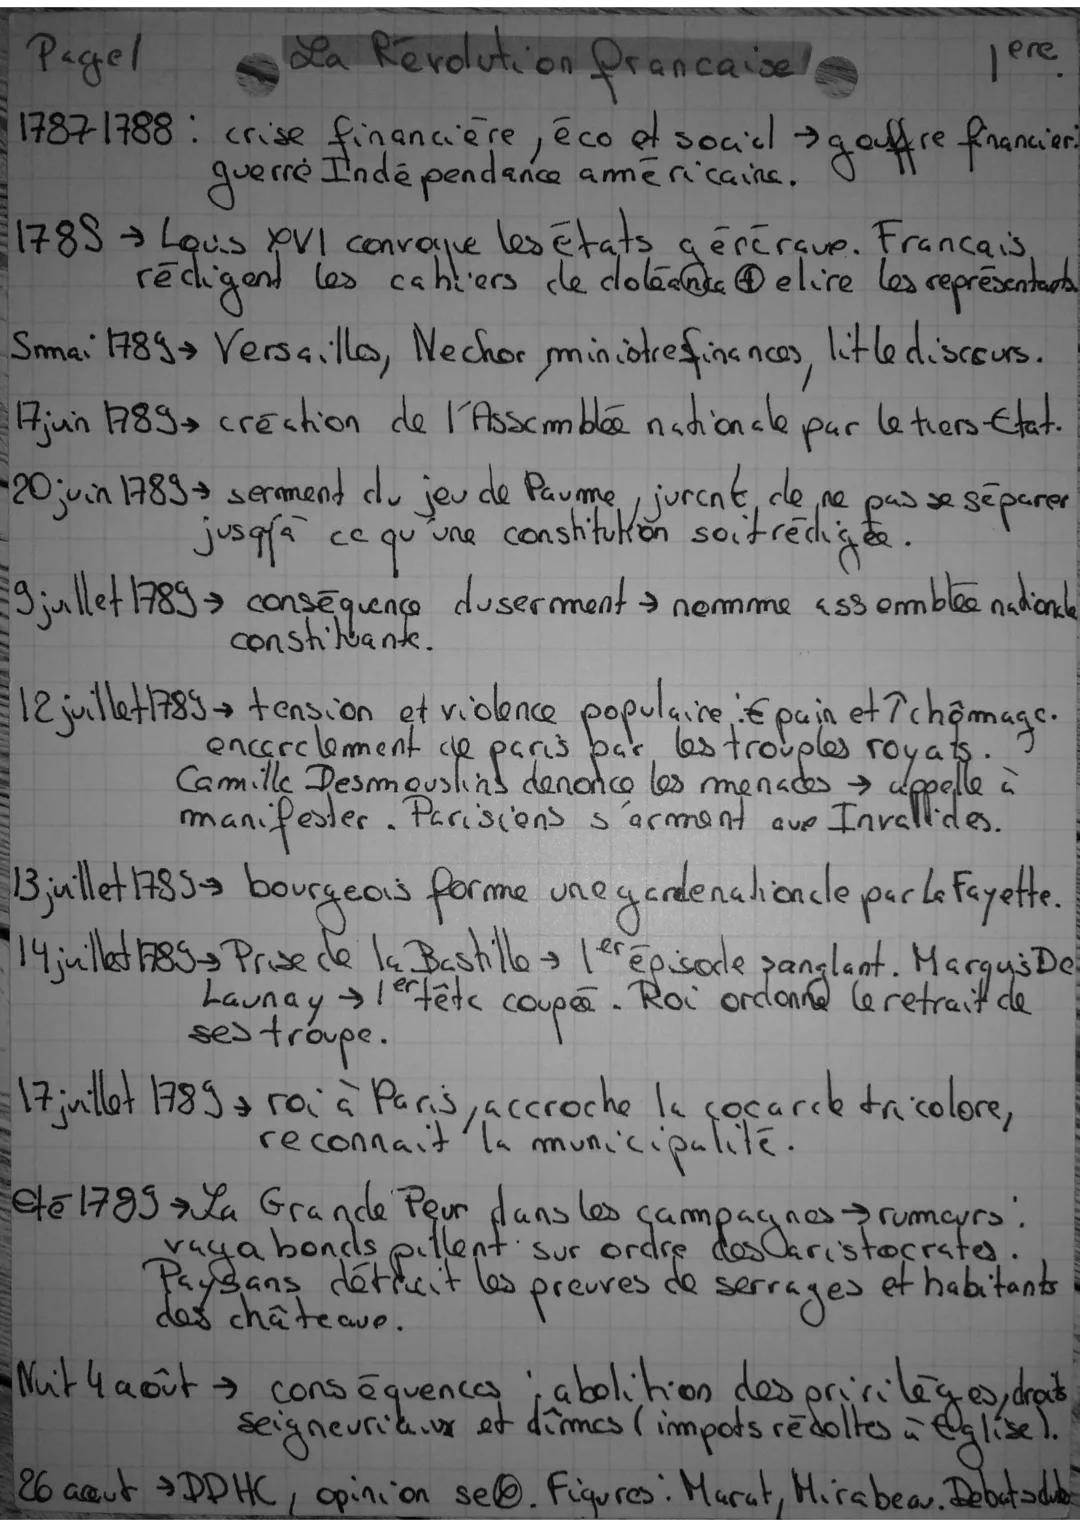 Page1 La Révolution francaise 1ere
1787-1788 : crise financière, éco et social → gouffre financier :
guerre Indépendance américaine.
1789 → Louis XVI convoque les états généraux. Francais
rédigent les cahiers de doléance + elire les représentants
5 mai 1789 → Versailles, Necker, ministre finances, lit le discours.
17 juin 1789 → création de l'Assemblée nationale par le tiers-Etat.
20 juin 1789 → serment du jeu de Paume, jurent de ne pas se séparer
jusqu'à ce qu'une constitution soit rédigée.
9 juillet 1789 → conséquence du serment → nomme assemblée nationale
constituante.
12 juillet 1789 → tension et violence populaire : € pain et ↑ chômage.
encerclement de paris par les trouples royals.
Camille Desmouslins denonce les menaces → appelle à
manifester. Parisiens s'arment aux Invallides.
13 juillet 1789 → bourgeois forme une garde nationale par La Fayette.
14 juillet 1789 → Prise de la Bastille → 1er épisode sanglant. Marquis De
Launay → 1er tête coupée. Roi ordonne le retrait de
ses troupe.
17 juillet 1789 → roi à Paris, accroche la cocarde tricolore,
reconnait la municipalité.
été 1789 → La Grande Peur dans les campagnes → rumeurs :
vagabonds pillent sur ordre des aristocrates.
Paysans détruit les preuves de serrages et habitants
des châteaux.
Nuit 4 août → conséquences : abolition des privilèges, droits
seigneuriaux et dîmes (impots récoltes à Église).
26 aout → DDHC, opinion se. Figures : Marat, Mirabeau. Debut